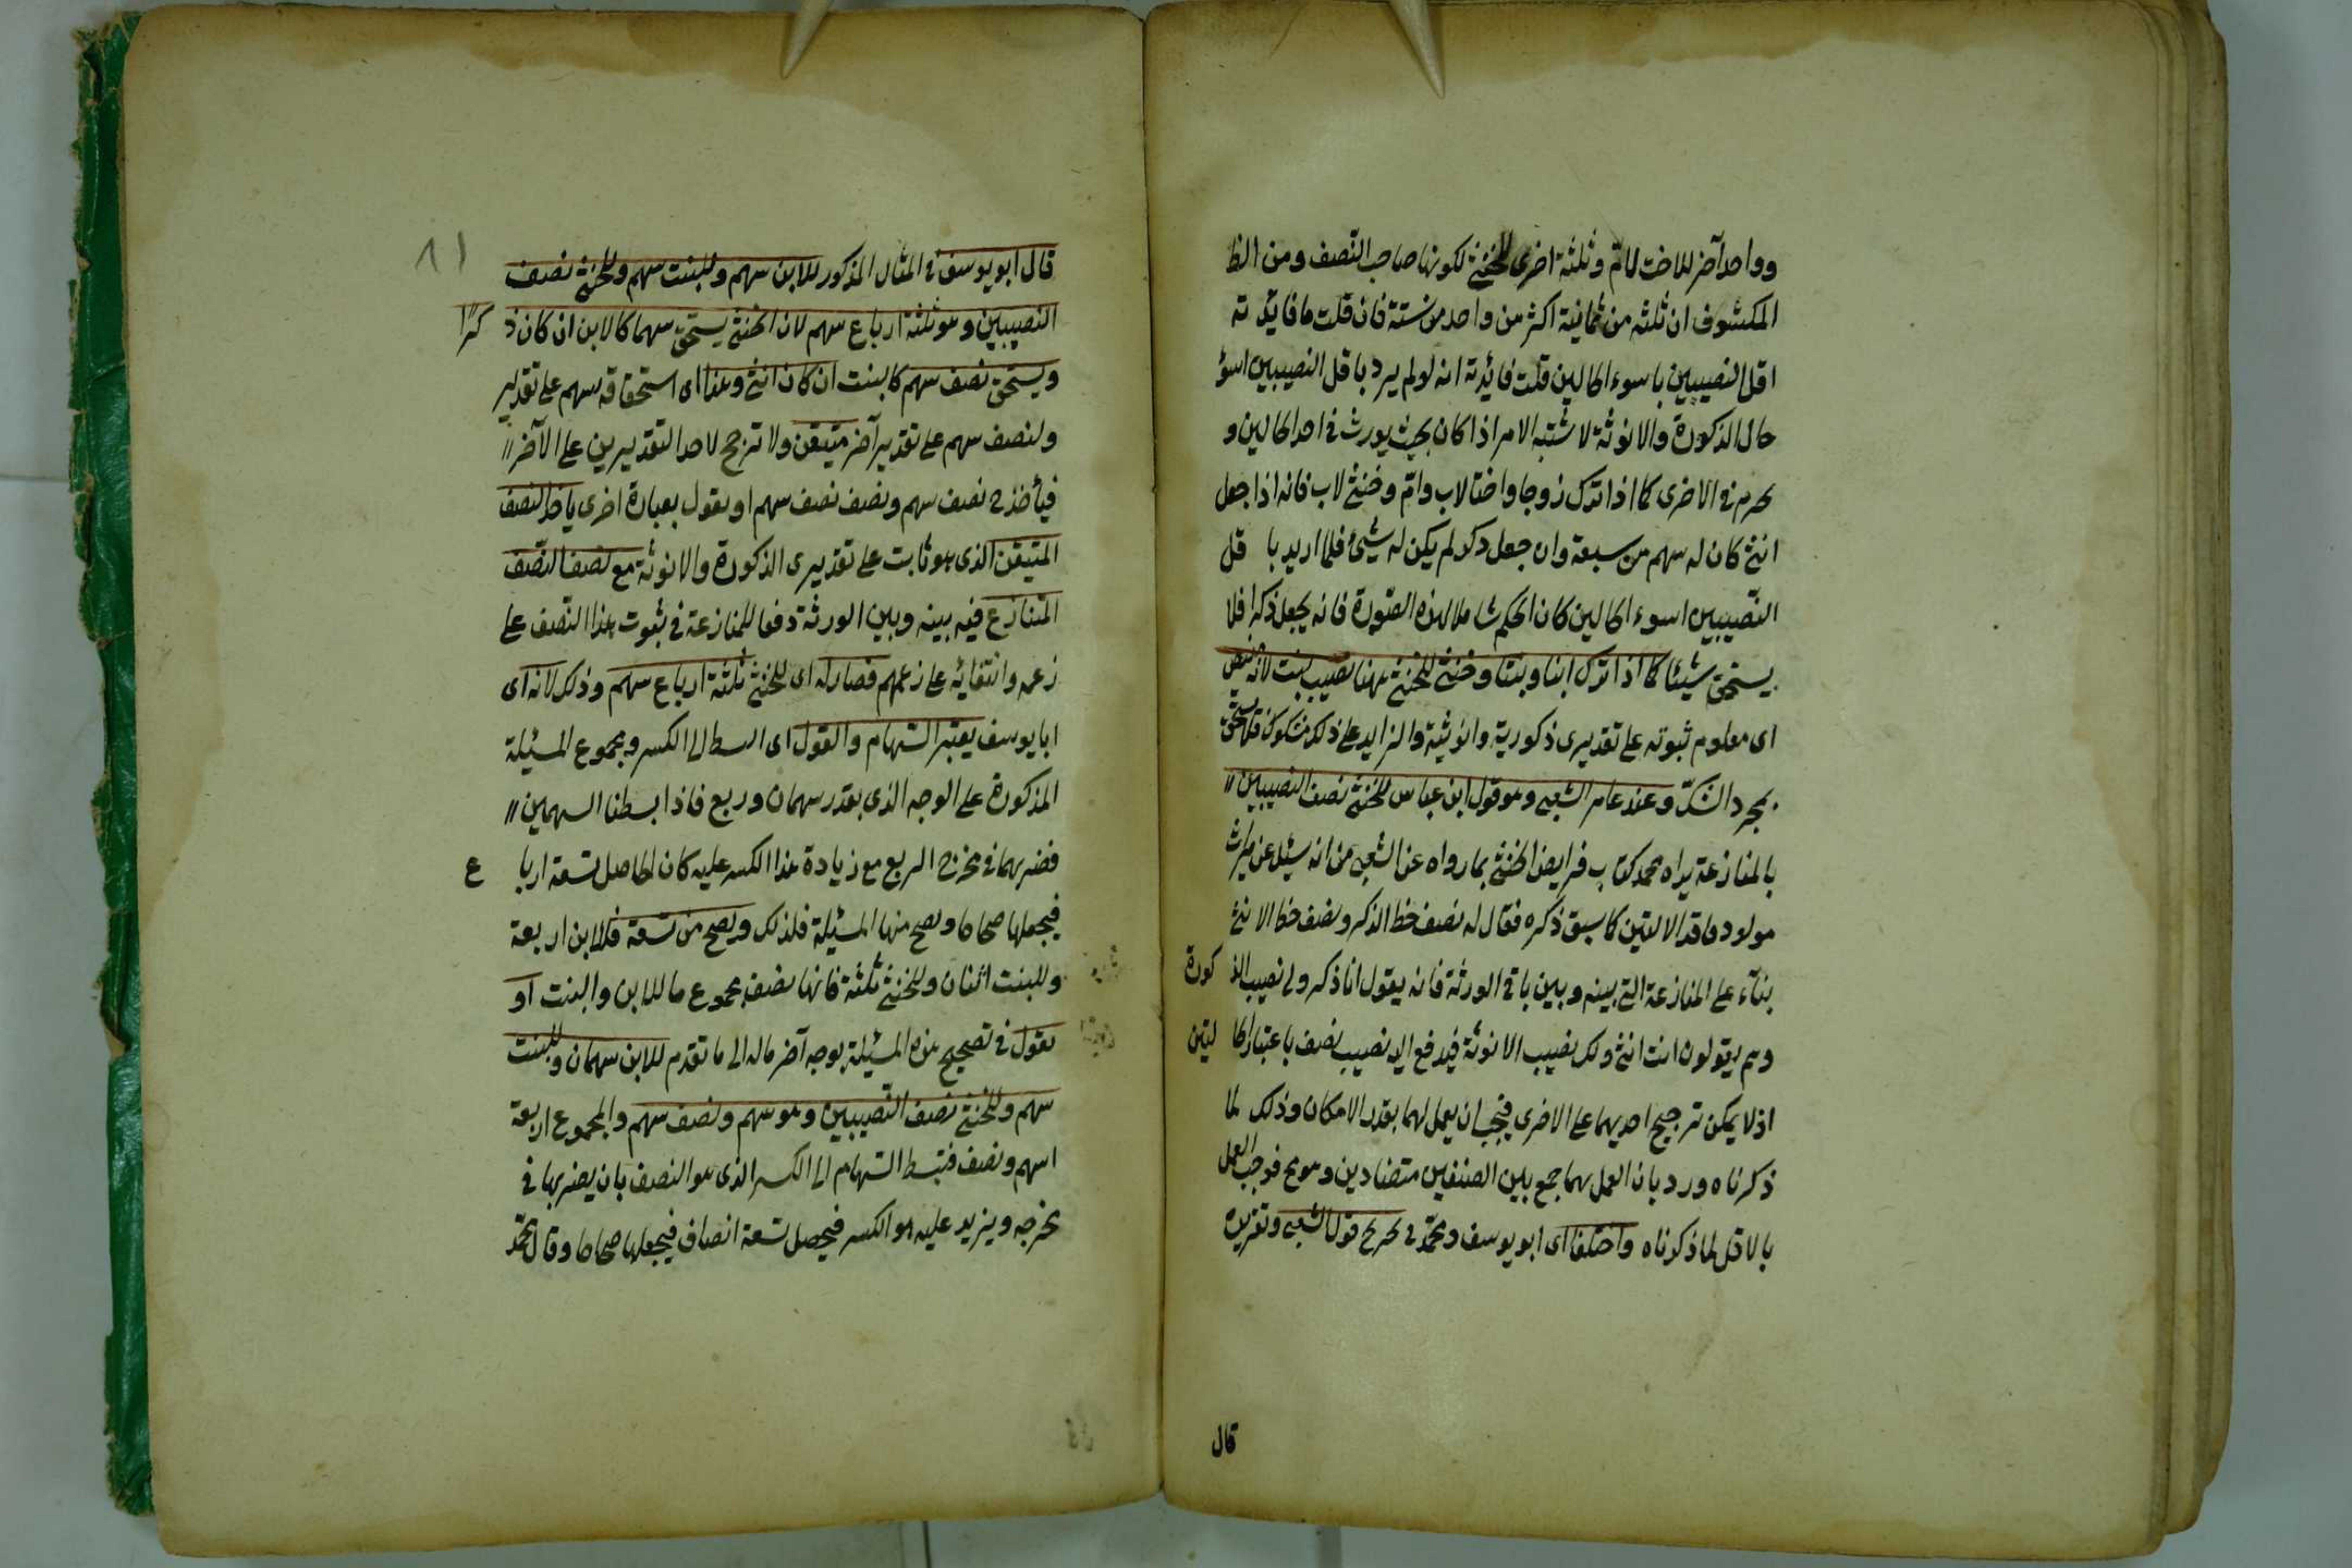 وواحد آخر للاخت لام وثلثة اخرى للخنثى لكونها صاحب النصف ومن الظا
المكشوف ان ثلثه من ثمانية اكثر من واحد من ستة فان قلت ما فايد ته
اقل النصيبين باسوء الحالين قلت فائدته انه لو لم يرد باقل النصيبين اسوؤ
حال الذكورة والانوثة لاشتبه الامر اذا كان بحيث يورث فى احد الحالين و
يحرم فى الاخرى كما اذا ترك زوجا واختا لاب وام وخنثى لاب فانه اذا جعل
انثى كان له سهم من سبعة وان جعل ذكرا لم يكن له شيئ فلما اريد با قل
النصيبين اسوء الحالين كان الحكم شاملا لهذه الصورة فانه يجعل ذكرا فلا
يستحق شيئا كما اذا ترك ابنا وبنتا وخنثى للخنثى ههنا نصيب بنت لانه متيقن
اى معلوم ثبوته على تقديرى ذكوريته وانوثيته والزايد على ذلك مشكوك فلا يستحق
بمجرد الشك وعند عامر الشعبى وهو قول ابن عباس للخنثى نصف النصيبين
بالمنازعة يراه محمد كتاب فرايض الخنثى بما رواه عن الشعبى من انه سيئل عن ميراث
مولود فاقد الالتين كما سبق ذكره فقال له نصف حظ الذكر ونصف حظ الانثى
بناء على المنازعة التى بينه وبين باقى الورثة فانه يقول انا ذكر ولى نصيب الذ كورة
وهم يقولون انت انثى ولك نصيب الانوثة فيدفع اليه نصيب نصف باعتبار الحا لتين
اذ لا يمكن ترجيح احديهما على الاخرى فيجب ان يعمل لهما بقدر الامكان وذلك لما
ذكرناه ورد بان العمل بهما جمع بين الصنفين متضادين وهو مح فوجب العمل
بالاقل لما ذكرناه واختلفا اى ابو يوسف ومحمد فى تخريج قول الشعبى وتقريره
قال
٨١
قال ابو يوسف فى المثال المذكور للابن سهم وللبنت سهم وللخنثى نصف
النصيبين وهو ثلثة ارباع سهم لان الخنثى يستحق سهما كالابن ان كان ذ كرًا
ويستحق نصف سهم كالبنت ان كان انثى وهذا اى استحقاقه سهم على تقدير
ولنصف سهم على تقدير آخر متيقن ولا ترجح لاحد التقديرين على الآخر
فيأخذ ح نصف سهم ونصف نصف سهم او نقول بعبارة اخرى ياخذ النصف
المتيقن الذى هو ثابت على تقديرى الذكورة والانوثة مع نصف النصف
المتنازع فيه بينه وبين الورثة دفعا للمنازعة فى ثبوت هذا النصف على
زعمه وانتفائه على زعمهم فصار له اى للخنثى ثلثة ارباع سهم وذلك لانه اى
ابا يوسف يعتبر السهام والعول اى البسط الى الكسر ومجموع المسئلة
المذكورة على الوجه الذى بقدر سهمان وربع فاذا بسطنا السهمين
فضربهما فى مخرج الربع مع زيادة هذا الكسر عليه كان الحاصل تسعة اربا ع
فيجعلها صحاحا وتصح منها المسئلة فلذلك وتصح من تسعة فللابن اربعة
وللبنت اثنان وللخنثى ثلثة فانها نصف مجموع ما للابن والبنت او
نقول فى تصحيح هذه المسئلة بوجه آخر ماله الى ما تقدم للابن سهمان وللبنت
سهم وللخنثى نصف النصيبين وهو سهم ونصف سهم والمجموع اربعة
اسهم ونصف فتبسط السهام الى الكسر الذى هو النصف بان يضربها فى
مخرجه ويزيد عليه هو الكسر فيحصل تسعة انصاف فيجعلها صحاحا وقال محمد